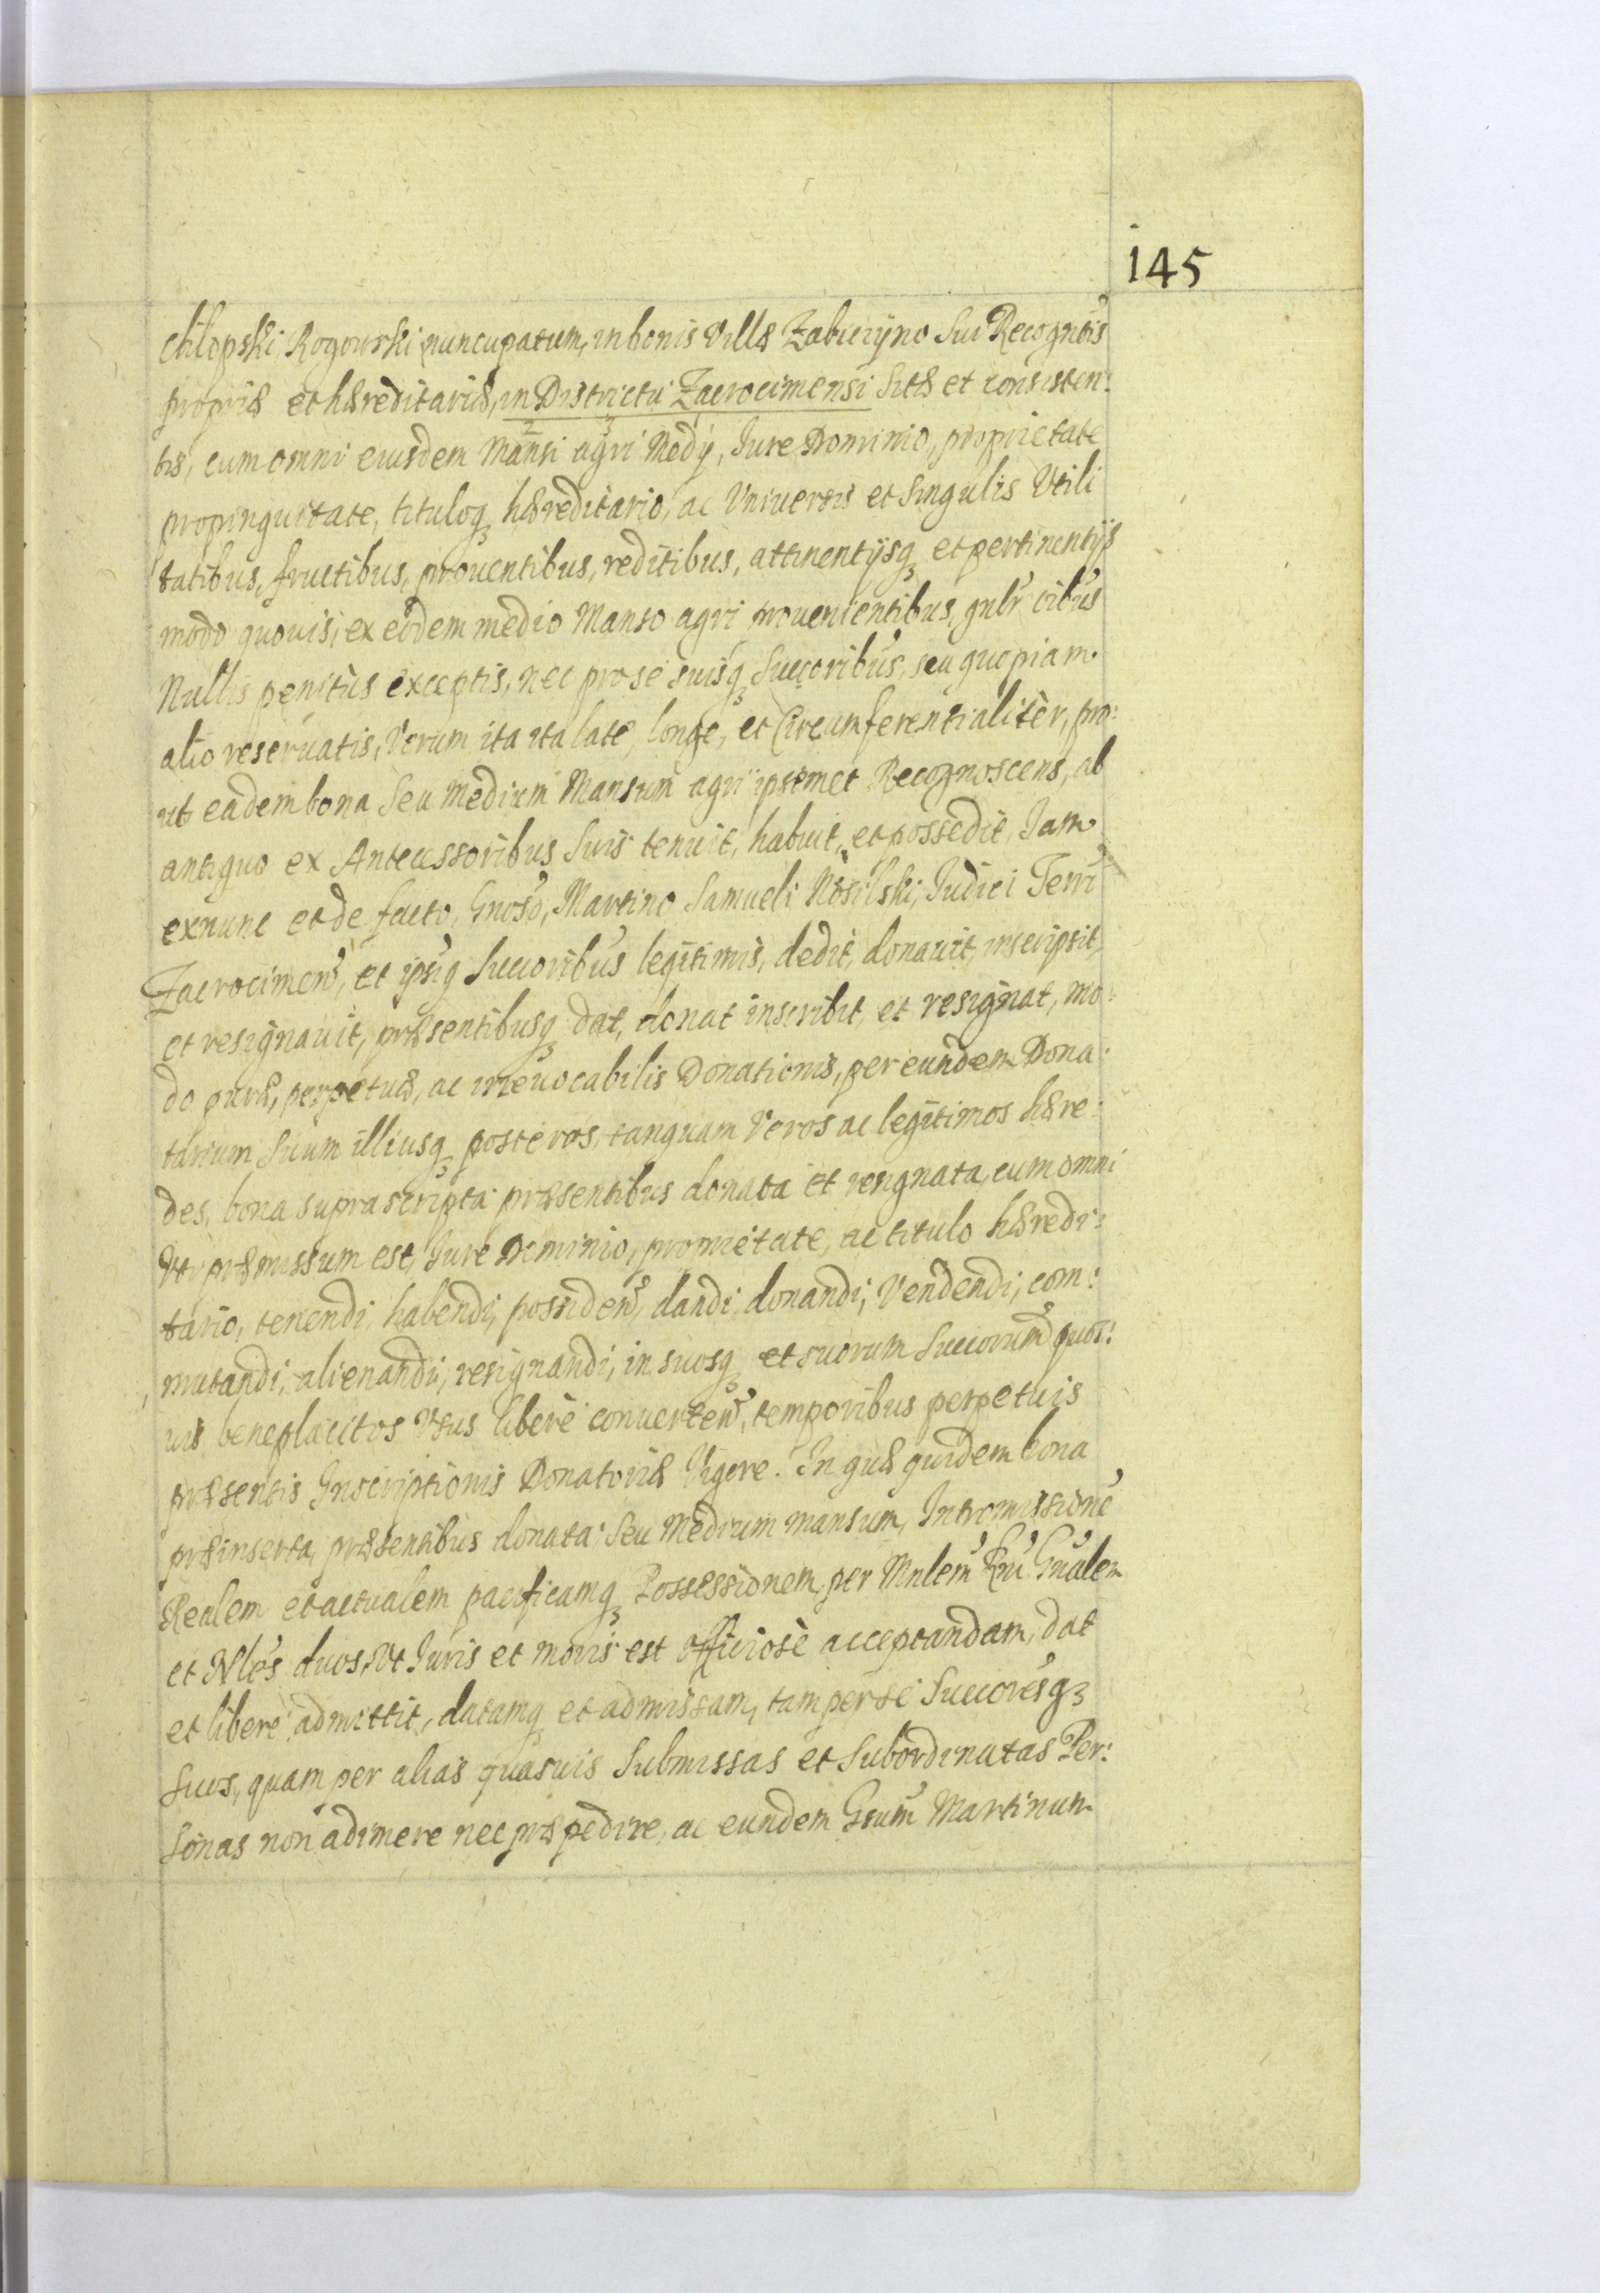 145
Chłopski Rogowski nuncupatum, in bonis Villæ Zabiczyno sui Recogntis
propriæ et hæreditariæ, in Districtu Zacrocimensi sitæ et consisten:
tis, cum omni eiusdem Mansi agri Medÿ, Jure Dominio, proprietate
propinquitate, tituloq hæreditario, ac Vniuersis et singulis Vtili
tatibus, fructibus, prouentibus, reditibus, attinentÿsq et pertinentÿs
modo quouis, ex eodem medio Manso agri prouenientibus, gnlr oibus
Nullis penitùs exceptis, nec pro se suisq Succoribus, seu quopiam
alio reseruatis, Verum ita ita late, longe, et Circumferentialitèr, pro:
ut eadem bona seu medium Mansum agri ipsemet Recognoscens, ab
antiquo ex Antecessoribus suis tenuit, habuit, et possedit, Jam
exnunc et de facto, Gnoso, Martino Samueli Nosilski, Judici Terri
Zacrocimen, et ipsiq Succoribus legitimis, dedit, donauit, inscripsit,
et resignauit, præsentibusq dat, donat inscribit, et resignat, mo:
do puræ, perpetuæ, ac irreuocabilis Donationis, per eundem Dona:
tarium suum illiusq posteros, tanquam Veros ac legitimos hære:
des, bona suprascripta præsentibus donata et resignata, cum omni
Vt præmissum est, Jure Dominio, proprietate, ac titulo hæredi:
tario, tenendi, habendi, possiden, dandi, donandi, Vendendi, com:
mutandi, alienandi, resignandi, in suosq et suorum Succorum quos:
uis beneplacitos Vsus liberè conuerten, temporibus perpetuis
præsentis Inscriptionis Donatoriæ Vigore. In quæ quidem bona
præinserta, præsentibus donata seu Medium mansum, Intromissione
Realem et actualem pacificamq Possessionem, per Mnlem Gnalem
et Nles duos, Vt Juris et moris est officiosè acceptandam, dat
et liberè admittit, datamq et admissam, tam per se Succoresq
suos, quam per alias quasuis submissas et subordinatas Per:
sonas non adimere nec præpedire, ac eundem Gsum Martinum